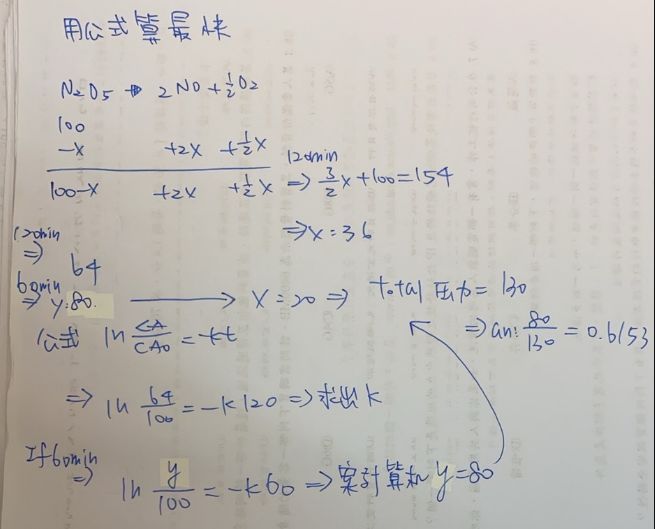 用公式算最快
N₂O₅ → 2NO + ½O₂
100
-x +2x +½x
100-x +2x +½x
120min ⇒ 3/2 x + 100 = 154
⇒ x = 36
120min ⇒ 64
60min ⇒ y: 80. → x = 20 ⇒ total 壓力 = 130
⇒ an: 80/130 = 0.6153
公式 ln CA/CA0 = -kt
⇒ ln 64/100 = -k120 ⇒ 求出 k
If 60min ⇒ ln y/100 = -k60 ⇒ 案計算机 y = 80